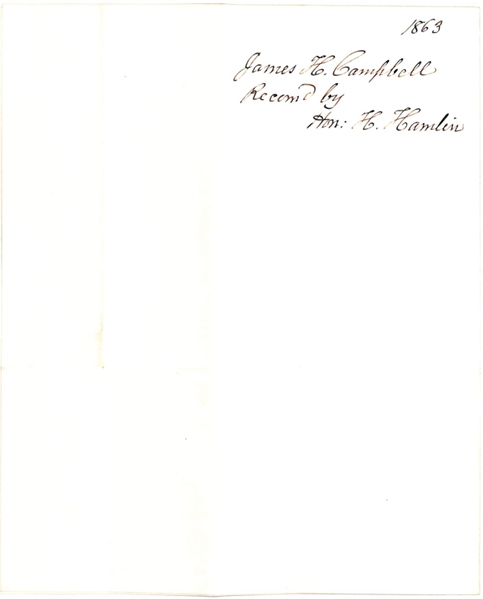 1863
James H. Campbell
Recom'd by
Hon: H. Hamlin